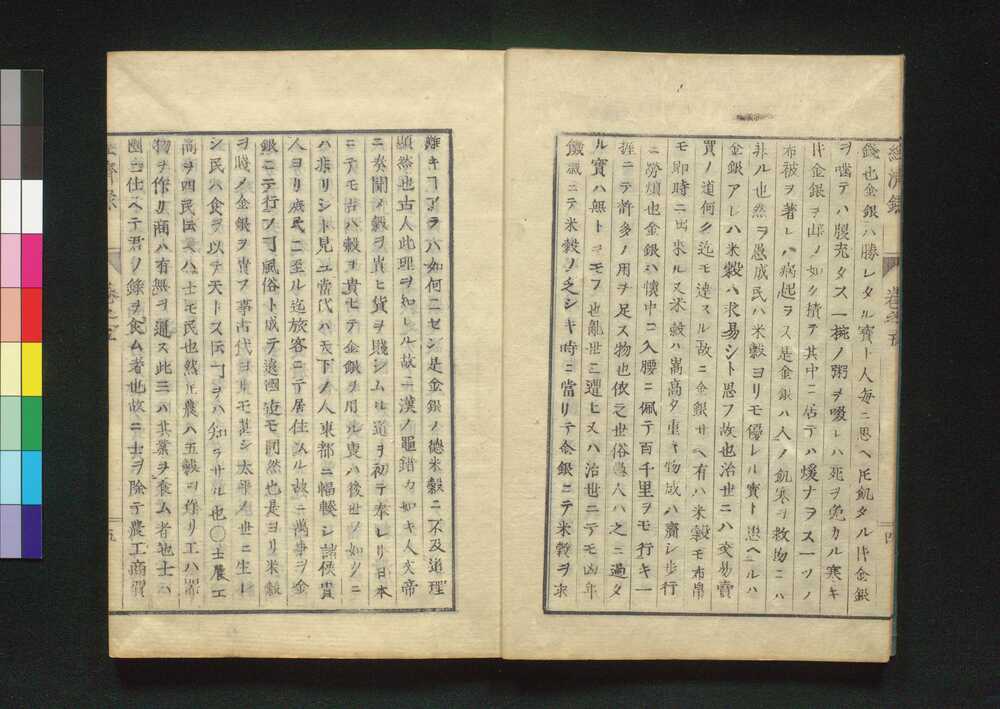 錢也金銀ハ勝レタル寳ト人毎ニ思ヘ𪜈飢タル片金銀
ヲ噛テハ腹充タス一椀ノ粥ヲ啜レハ死ヲ免カル寒キ
片金銀ヲ山ノ如ク積テ其中ニ居テハ煖ナラス一ツノ
布被ヲ著レハ病起ラス是金銀ハ人ノ飢寒ヲ救物ニハ
非ル也然ヲ愚成民ハ米穀ヨリモ優レル寳ト思ヘルハ
金銀アレハ米穀ハ求易シト思フ故也治世ニハ交易賣
買ノ道何ク迄モ達スル故ニ金銀サヘ有ハ米穀モ布帛
モ即時ニ出来ル又米穀ハ嵩高タ重キ物成ハ齎シ歩行
ニ勞煩也金銀ハ懷中ニ入腰ニ佩テ百千里ヲモ行キ一
握ニテ許多ノ用ヲ足ス物也依之世俗愚人ハ之ニ過タ
ル寳ハ無トヲモフ也亂世ニ遭ヒ又ハ治世ニテモ凶年
饑饉ニテ米穀ノ乏シキ時ニ當リテ金銀ニテ米穀ヲ求
難キヿアラハ如何ニセン是金銀ノ德米穀ニ不及道理
顯然也古人此理ヲ知レル故ニ漢ノ鼂錯カ如キ人文帝
ニ奏聞ノ穀ヲ貴ヒ貨ヲ賤シムル道ヲ初テ奉レリ日本
ニテモ古ハ穀ヲ貴ヒテ金銀ヲ用ル叓ハ後世ノ如クニ
ハ非リシト見ユ當代ハ天下ノ人東都ニ輻輳シ諸侯貴
人ヨリ庶民ニ至ル迄旅客ニテ居住スル故ニ萬事ヲ金
銀ニテ行フヿ風俗ト成テ遠國迄モ同然也是ヨリ米穀
ヲ賤メ金銀ヲ貴フ事古代ヨリモ甚シ太平ノ世ニ生レ
シ民ハ食ヲ以テ天トス伝ヿヲハ知ラサル也〇士農工
商ヲ四民伝ヘハ士モ民也然𪜈農ハ五穀ヲ作リ工ハ器
物ヲ作リ商ハ有無ヲ通ス此三ハ其業ヲ食ム者也士ハ
國ニ仕ヘテ君ノ祿ヲ食ム者也故ニ士ヲ除テ農工商賈
經濟録
巻之五
四
五